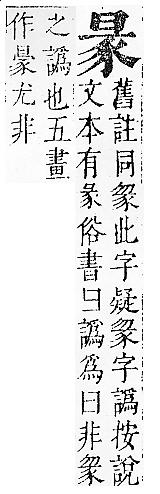 舊註同此字疑字譌按說
文本有彖俗書彐譌爲日非
之譌也五畫
作尤非